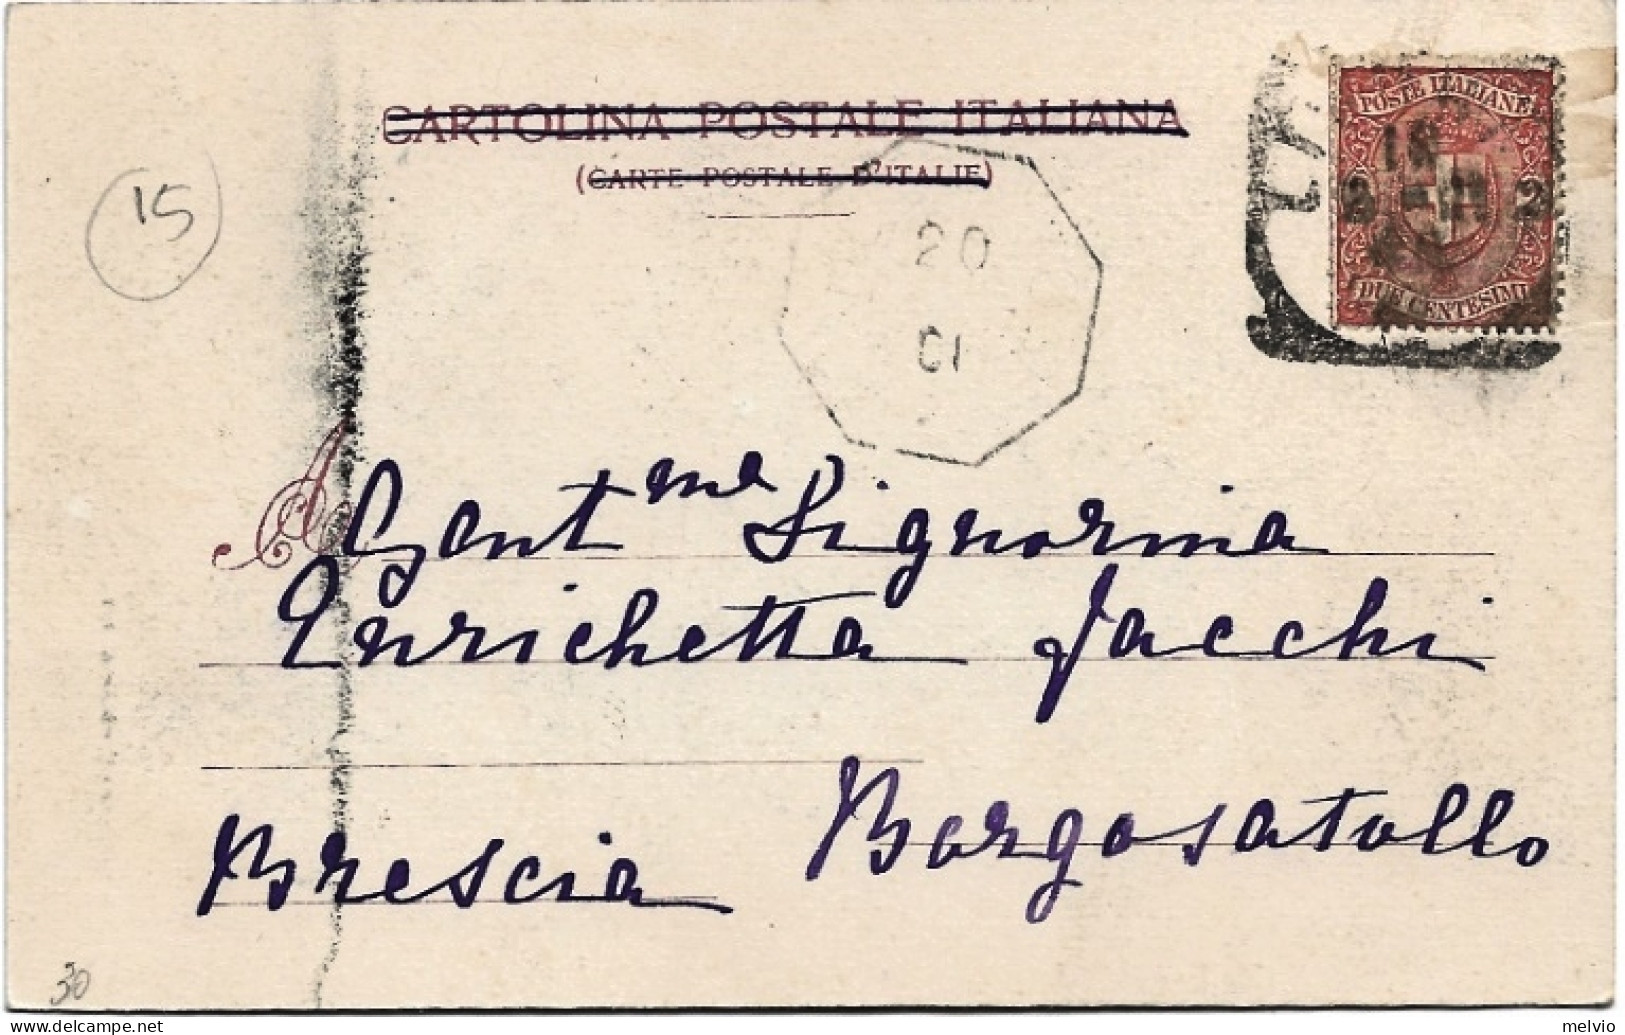 CARTOLINA POSTALE ITALIANA
(CARTE POSTALE D'ITALIE)
15
POSTE ITALIANE
18
2
2
DUE CENTESIMI
20
01
A Gent ma Signorina
Enrichetta Jacchi
Borgosatollo
Brescia
30
delcampe.net
melvio